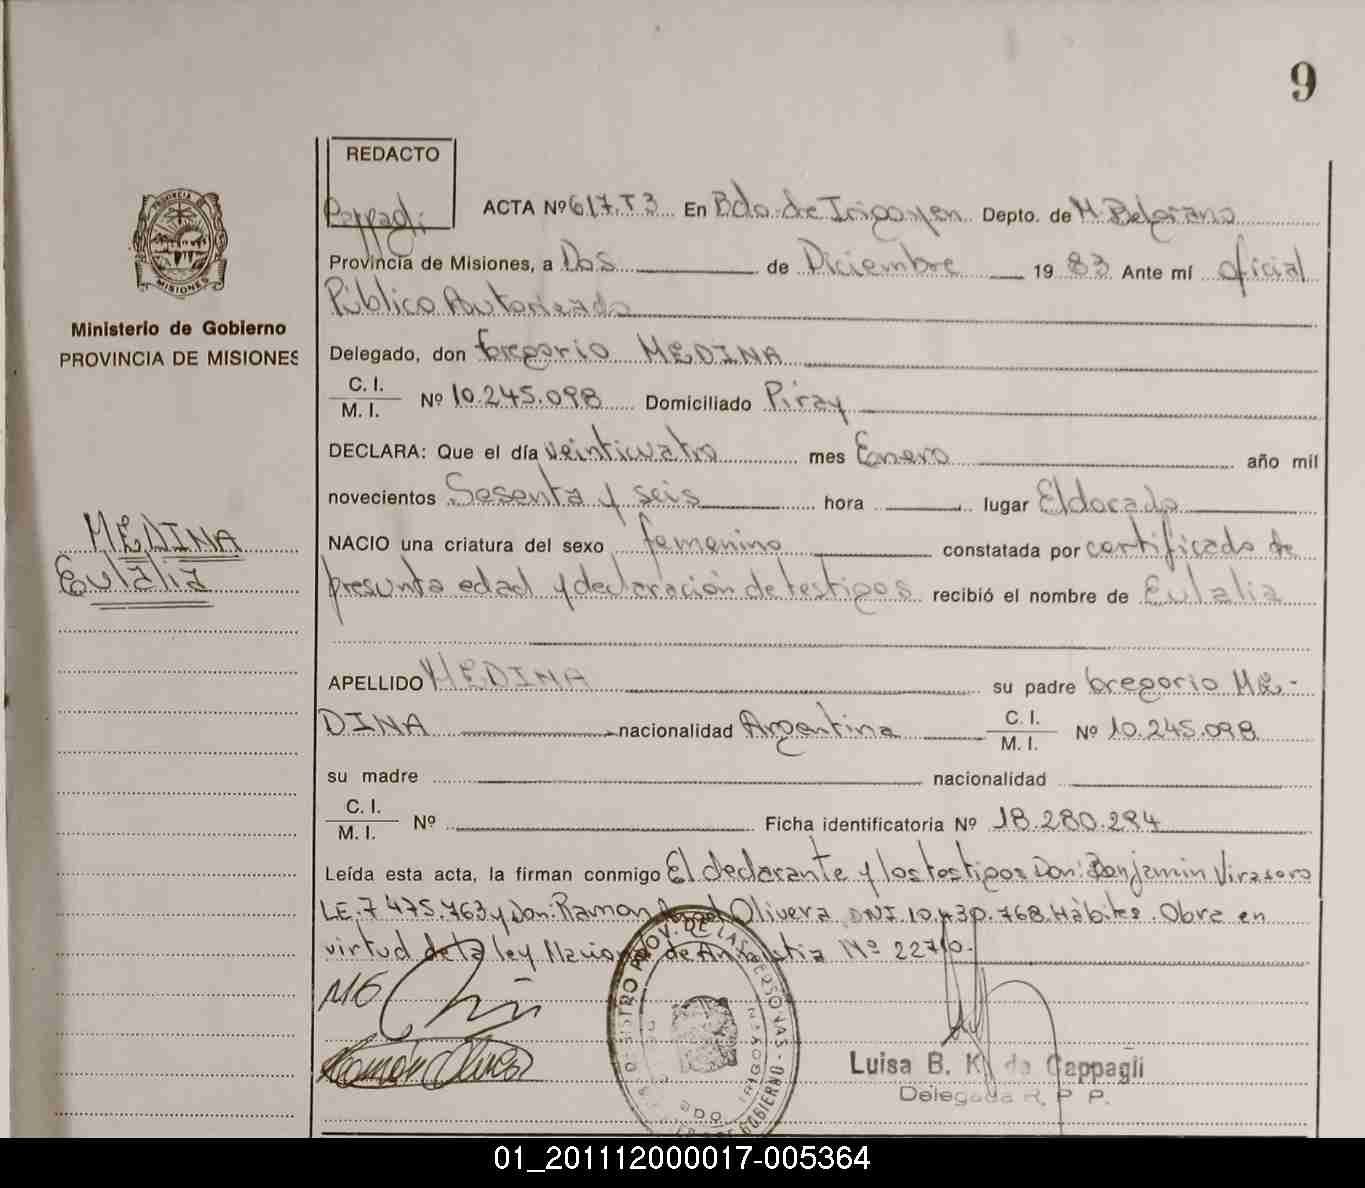 9
REDACTO
Cappagli
ACTA Nº 617.T3 En Bdo. de Irigoyen Depto. de M. Belgrano
Provincia de Misiones, a Dos de Diciembre 1983 Ante mí oficial
Público Autorizado
Delegado, don Gregorio MEDINA
C. I.
M. I. Nº 10.245.098 Domiciliado Piray
DECLARA: Que el día veinticuatro mes Enero año mil
novecientos Sesenta y seis hora lugar Eldorado
NACIO una criatura del sexo femenino constatada por certificado de
presunta edad y declaración de testigos recibió el nombre de Eulalia
APELLIDO MEDINA su padre Gregorio ME-
DINA nacionalidad Argentina C. I. M. I. Nº 10.245.098
su madre nacionalidad
C. I.
M. I. Nº Ficha identificatoria Nº 18.280.294
Leída esta acta, la firman conmigo El declarante y los testigos Don: Benjamin Virasoro
LE. 7.475.763 y Don: Ramon Angel Olivera DNI. 10.430.768. Hábiles. Obra en
virtud de la ley Nacional de Amnistia Nº 22710.
MG
Ramón Olivera
Luisa B. K. de Cappagli
Delegada R. P. P.
PROVINCIA DE
MISIONES
Ministerio de Gobierno
PROVINCIA DE MISIONES
MEDINA
Eulalia
REGISTRO PROV. DE LAS PERSONAS
BDO. IRIGOYEN
GOBIERNO
01_201112000017-005364